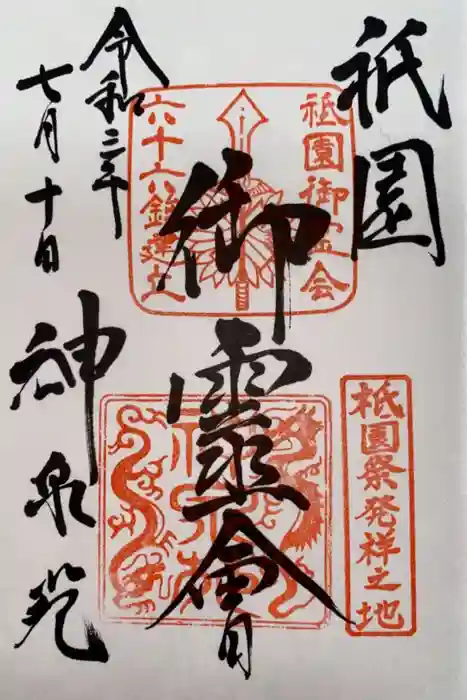 祇園
御霊會
令和三年
七月十日
神泉苑
祇園御霊会
六十六鉾建立
祇園祭発祥之地
神泉苑